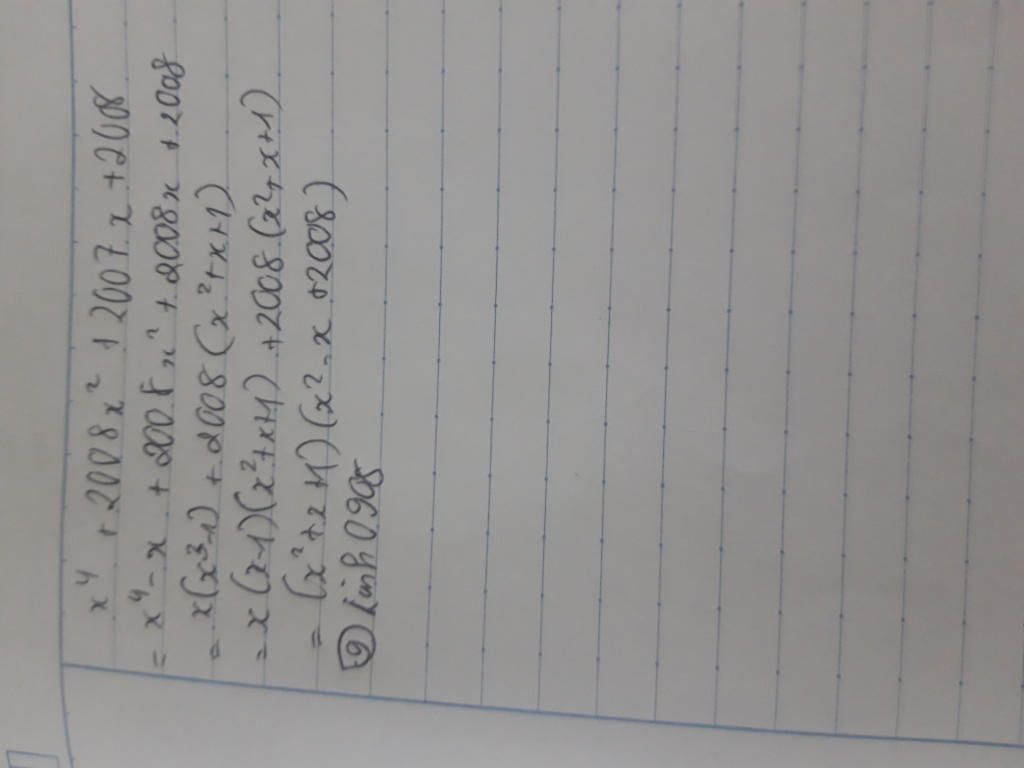 x⁴ + 2008x² + 2007x + 2008
= x⁴ - x + 2008x² + 2008x + 2008
= x(x³-1) + 2008(x²+x+1)
= x(x-1)(x²+x+1) + 2008(x²+x+1)
= (x²+x+1)(x²-x+2008)
@Linh0908